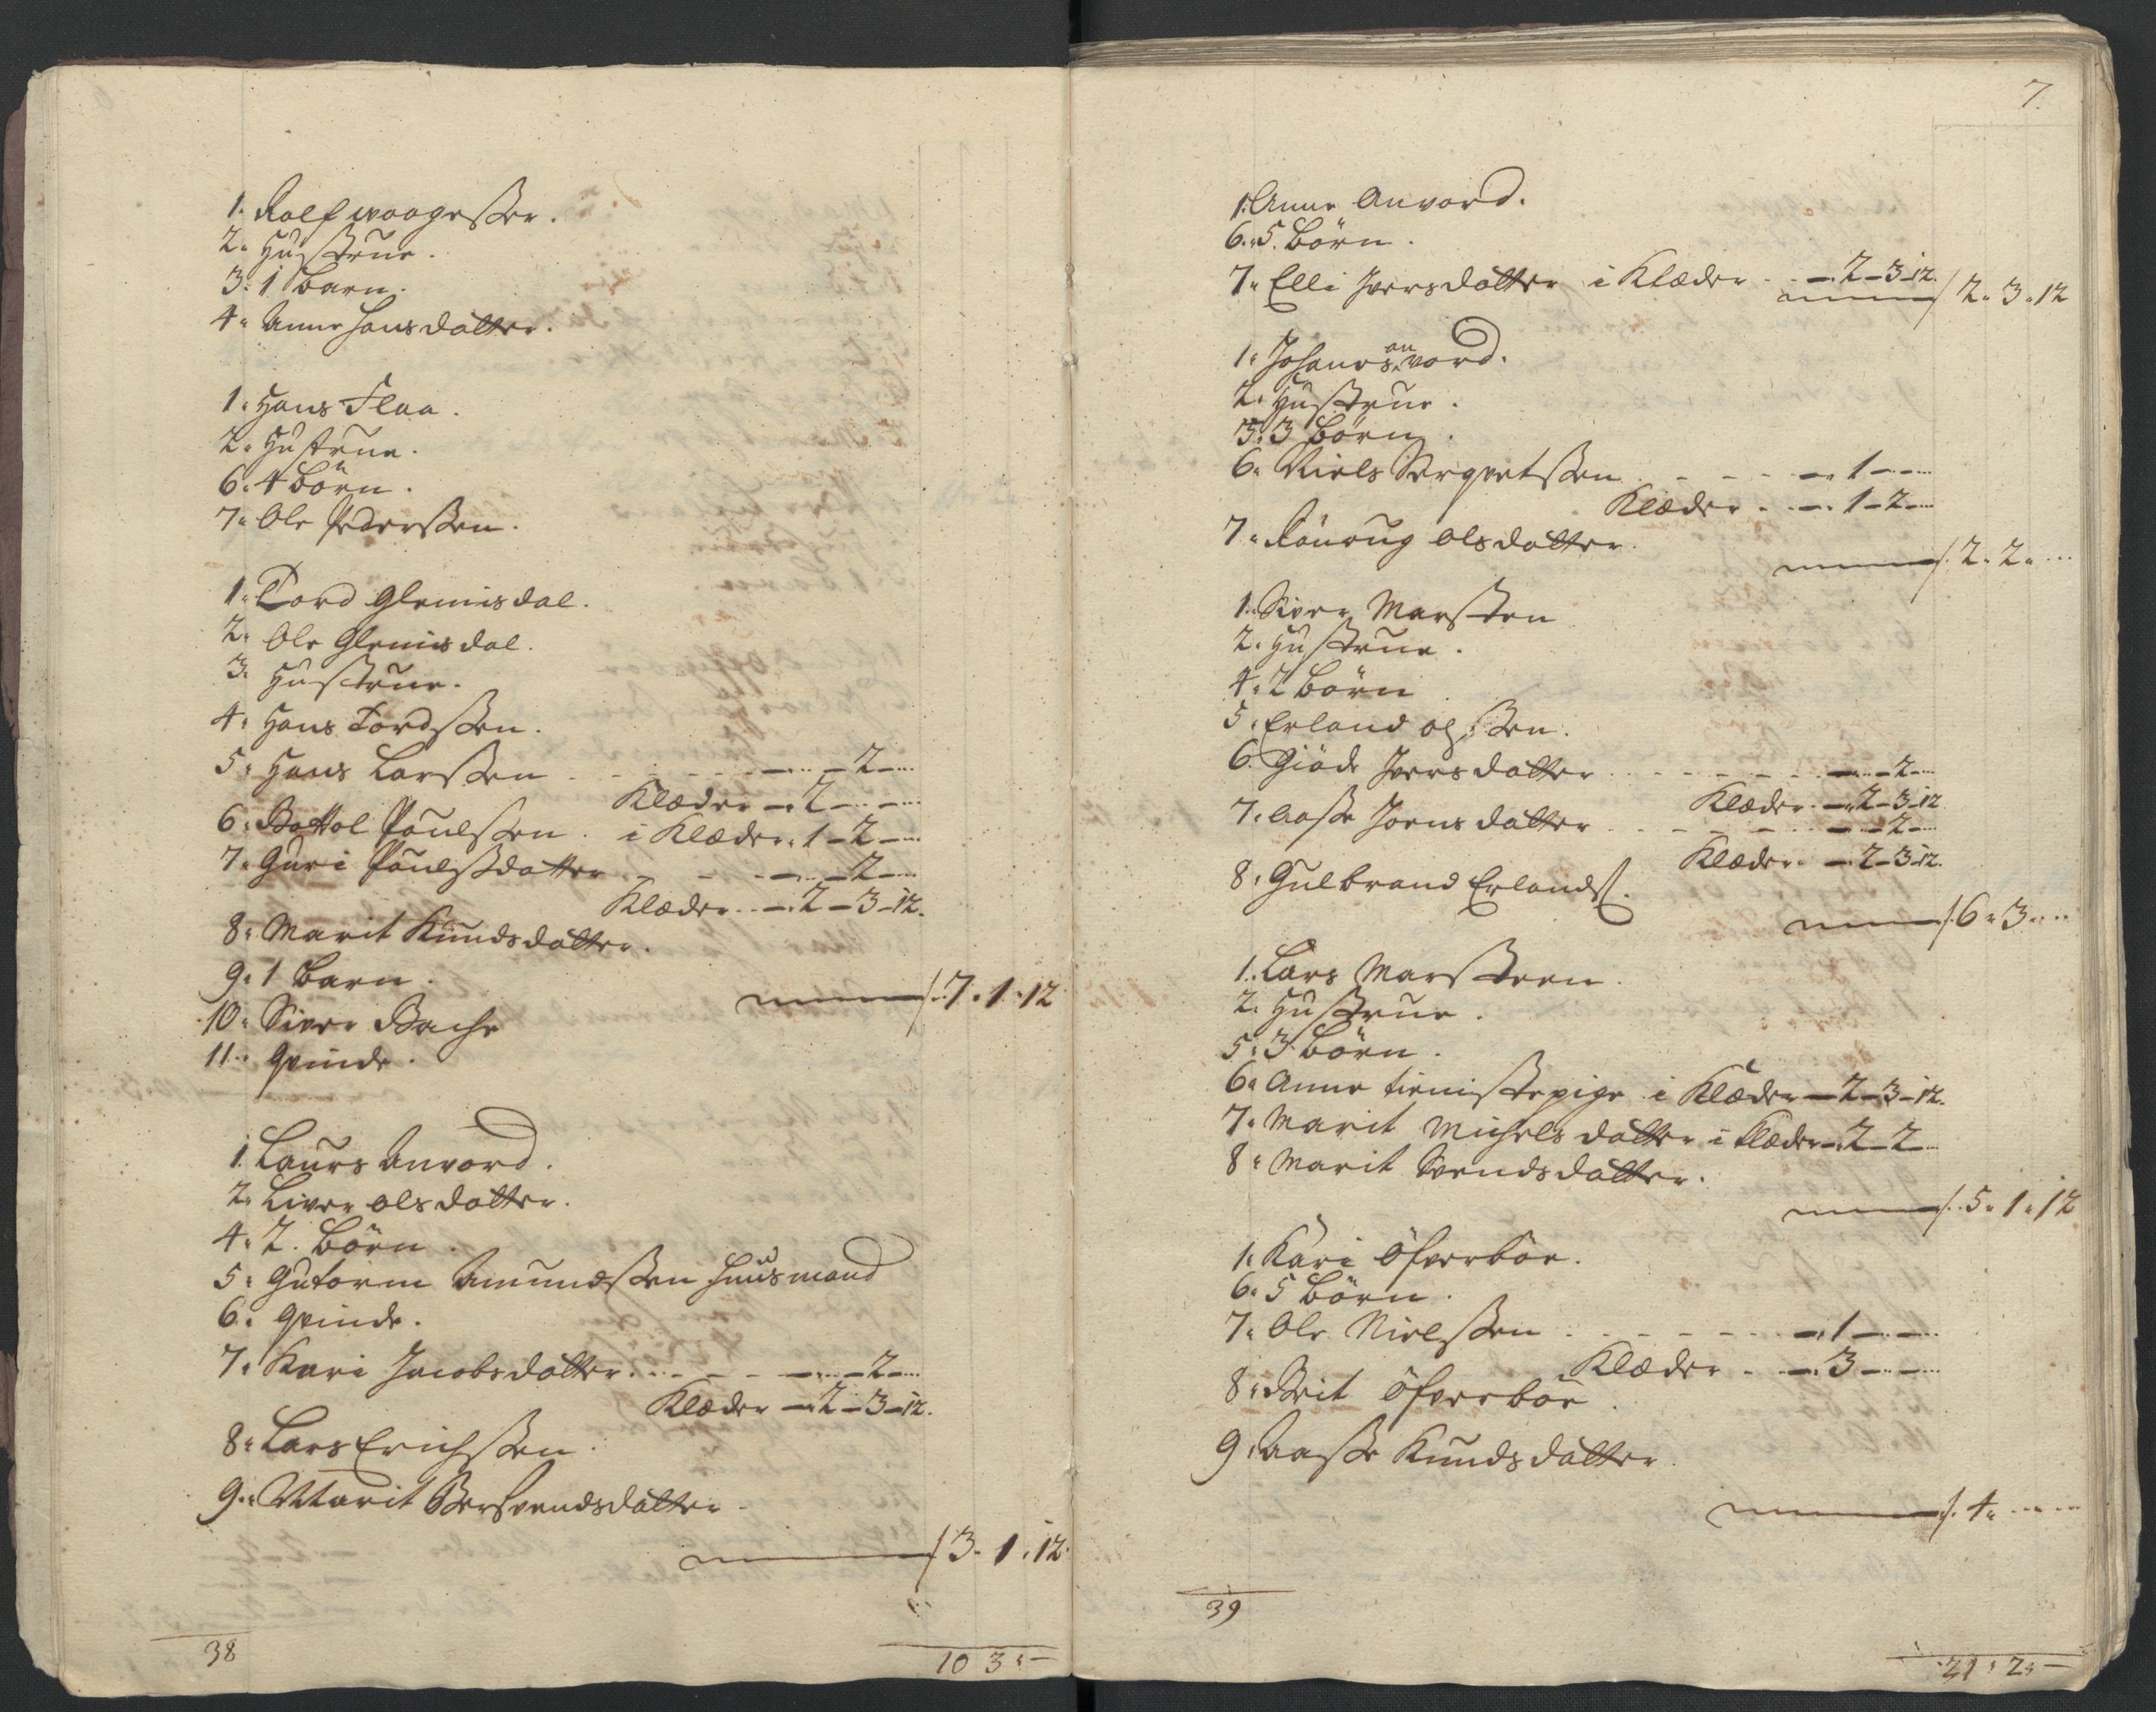 1. Rolf
2. Hustrue.
3. 1 barn.
4. Anne Hansdatter.
1. Hans Flaa.
2. Hustrue.
6. 4 börn.
7. Ole Pederssen.
1. Tord Glemisdal.
2. Ole Glemisdal.
3. Hustrue.
4. Hans Tordssen.
5. Hans Larssen - - - 2 -
Klæder - 2 - -
6. Bottol Poulssen. i Klæder. 1 - 2 -
7. Guri Poulssdatter - - - 2 -
Klæder - 2 - 3 - 12.
8. Marit Knudsdatter.
9. 1 barn.
/. 7. 1. 12
10. Siver Bache
11. Qvinde.
1. Laurs Anvord.
2. Liver olsdatter.
4. 2. börn.
5. Gutorm Amundssen Huusmand
6. Qvinde.
7. Kari Jacobsdatter. - - - 2 -
Klæder - 2 - 3 - 12.
8. Lars Erichssen.
9. Marit Bersvendsdatter
/ 3. 1. 12.
38
10 3. -
7.
1. Anne Anvord.
6. 5. börn.
7. Elli Iversdatter i Klæder - 2 - 3 - 12.
/ 2. 3. 12
1. Johanes anvord.
2. Hustrue.
5. 3 börn.
6. Niels - - 1 - -
Klæder - 1 - 2 -
7. Rönnug olsdatter.
/. 2. 2.
1. Siver Marsteen
2. Hustrue.
4. 2 börn
5. Erland olssen.
6. Giöde Iversdatter - - - 2 -
Klæder - 2 - 3 - 12
7. Aasse Joensdatter - - - 2 -
Klæder - 2 - 3 - 12.
8. Gulbrand Erlands.
/. 6. 3.
1. Lars Marsteen.
2. Hustrue.
5. 3 börn.
6. Anne tienistepige i Klæder - 2 - 3 - 12.
7. Marit Michelsdatter i Klæder - 2 - 2 -
8. Marit Svendsdatter.
/. 5. 1. 12
1. Kari öfverböe.
6. 5 börn.
7. Ole Nielssen - - 1 - -
Klæder - 3 - -
8. Brit öfverböe.
9. Aasse Knudsdatter
/. 4.
39
21. 2. -